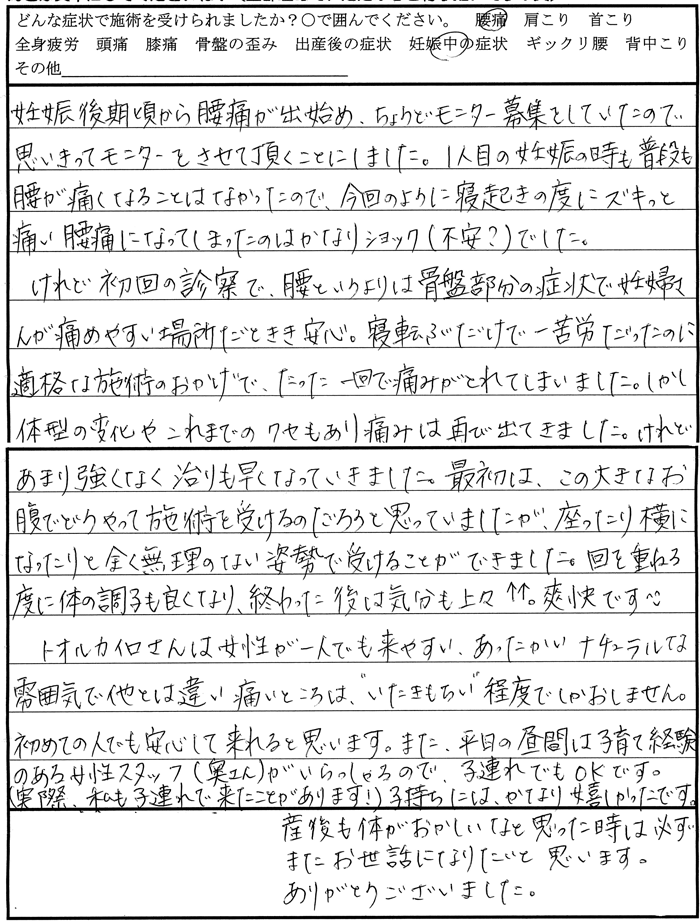 どんな症状で施術を受けられましたか？○で囲んでください。　腰痛　肩こり　首こり
全身疲労　頭痛　膝痛　骨盤の歪み　出産後の症状　妊娠中の症状　ギックリ腰　背中こり
その他
妊娠後期頃から腰痛が出始め、ちょうどモニター募集をしていたので
思いきってモニターをさせて頂くことにしました。1人目の妊娠の時も普段も
腰が痛くなることはなかったので、今回のように寝起きの度にズキっと
痛い腰痛になってしまったのはかなりショック(不安？)でした。
けれど初回の診察で、腰というよりは骨盤部分の症状で妊婦さ
んが痛めやすい場所だときき安心。寝転ぶだけで一苦労だったのに
適格な施術のおかげで、たった一回で痛みがとれてしまいました。しかし
体型の変化やこれまでのクセもあり痛みは再び出てきました。けれど
あまり強くなく治りも早くなっていきました。最初は、この大きなお
腹でどうやって施術を受けるのだろうと思っていましたが、座ったり横に
なったりと全く無理のない姿勢で受けることができました。回を重ねる
度に体の調子も良くなり、終わった後は気分も上々↑↑。爽快です
トオルカイロさんは女性が一人でも来やすい、あったかいナチュラルな
雰囲気で他とは違い痛いところは、"いたきもちい"程度でしかおしません。
初めての人でも安心して来れると思います。また、平日の昼間は子育て経験
のある女性スタッフ(奥さん)がいらっしゃるので、子連れでもOKです。
(実際、私も子連れで来たことがあります！)子持ちには、かなり嬉しかったです。
産後も体がおかしいなと思った時は必ず
またお世話になりたいと思います。
ありがとうございました。